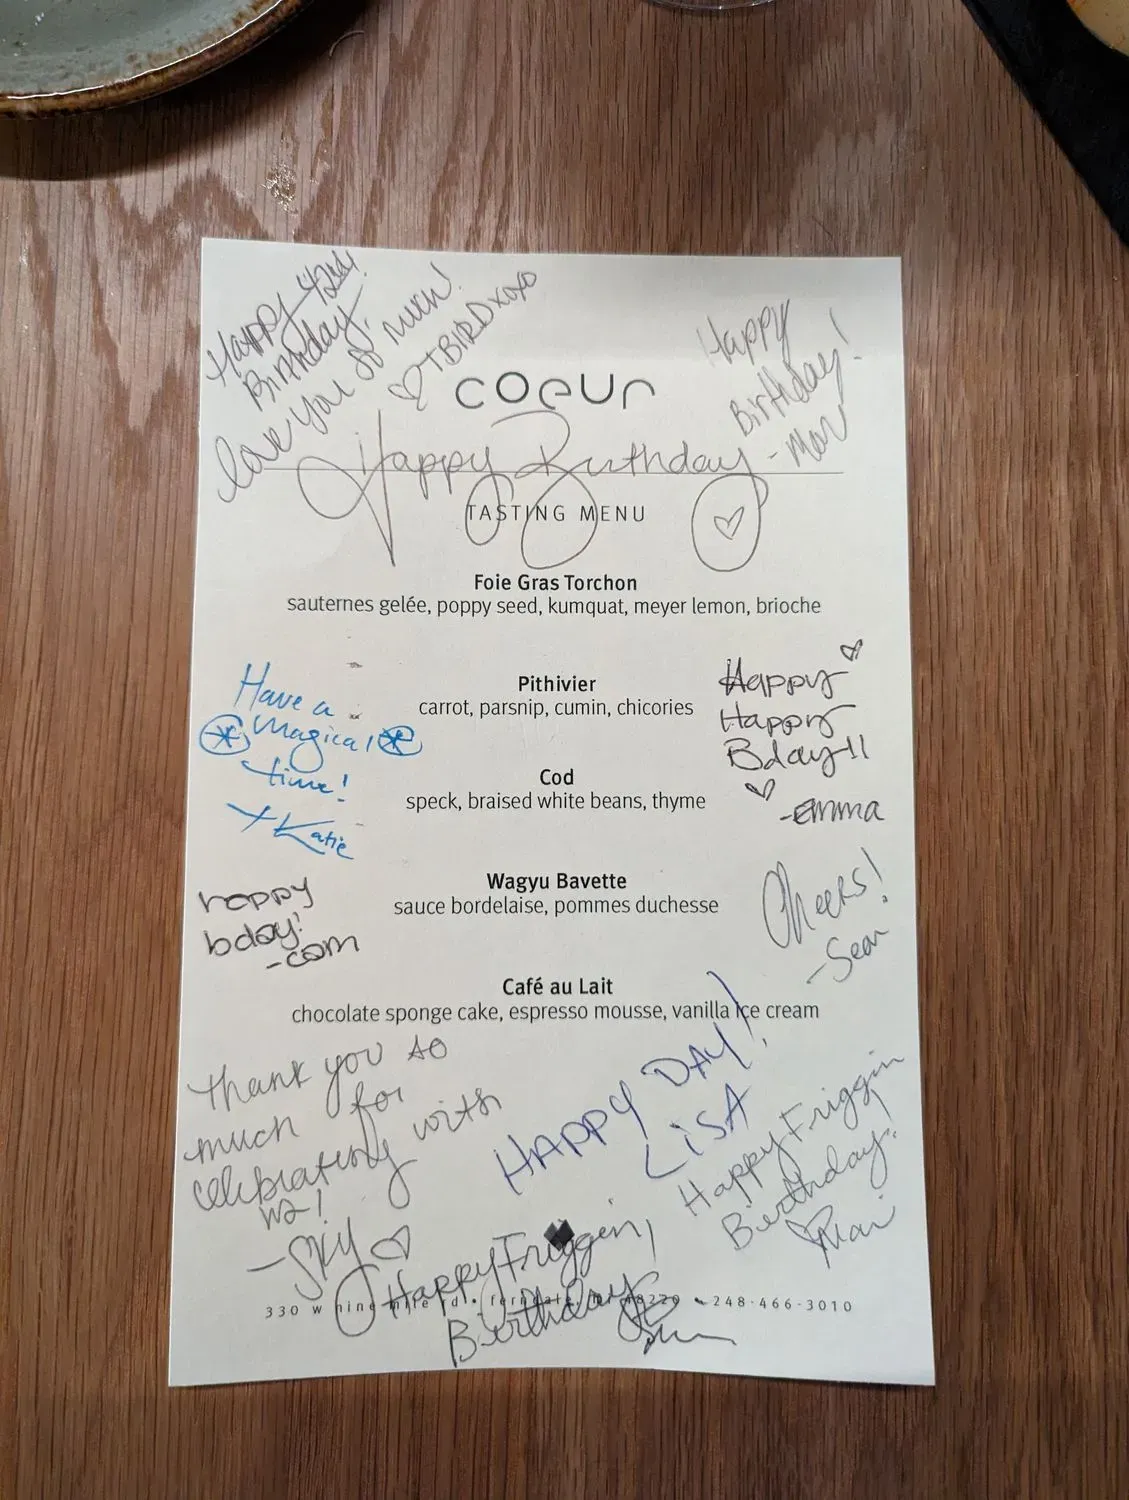 Happy 42nd
Birthday!
love you so much!
♡TBIRDxoxo
Happy
Birthday!
- Mar
coeur
Happy Birthday
TASTING MENU
Foie Gras Torchon
sauternes gelée, poppy seed, kumquat, meyer lemon, brioche
Pithivier
carrot, parsnip, cumin, chicories
Have a
Magical
time!
Katie
Happy
Happy
Bday!!
-Emma
Cod
speck, braised white beans, thyme
Wagyu Bavette
sauce bordelaise, pommes duchesse
happy
bday!
-cam
Cheers!
-Sean
Café au Lait
chocolate sponge cake, espresso mousse, vanilla ice cream
Thank you so
much for
celebrating with
us!
-Sky ♡
HAPPY DAY!
LISA
Happy Friggin
Birthday!
Happy Friggin
Birthday
330 w nine mile rd • ferndale, mi 48220 • 248-466-3010